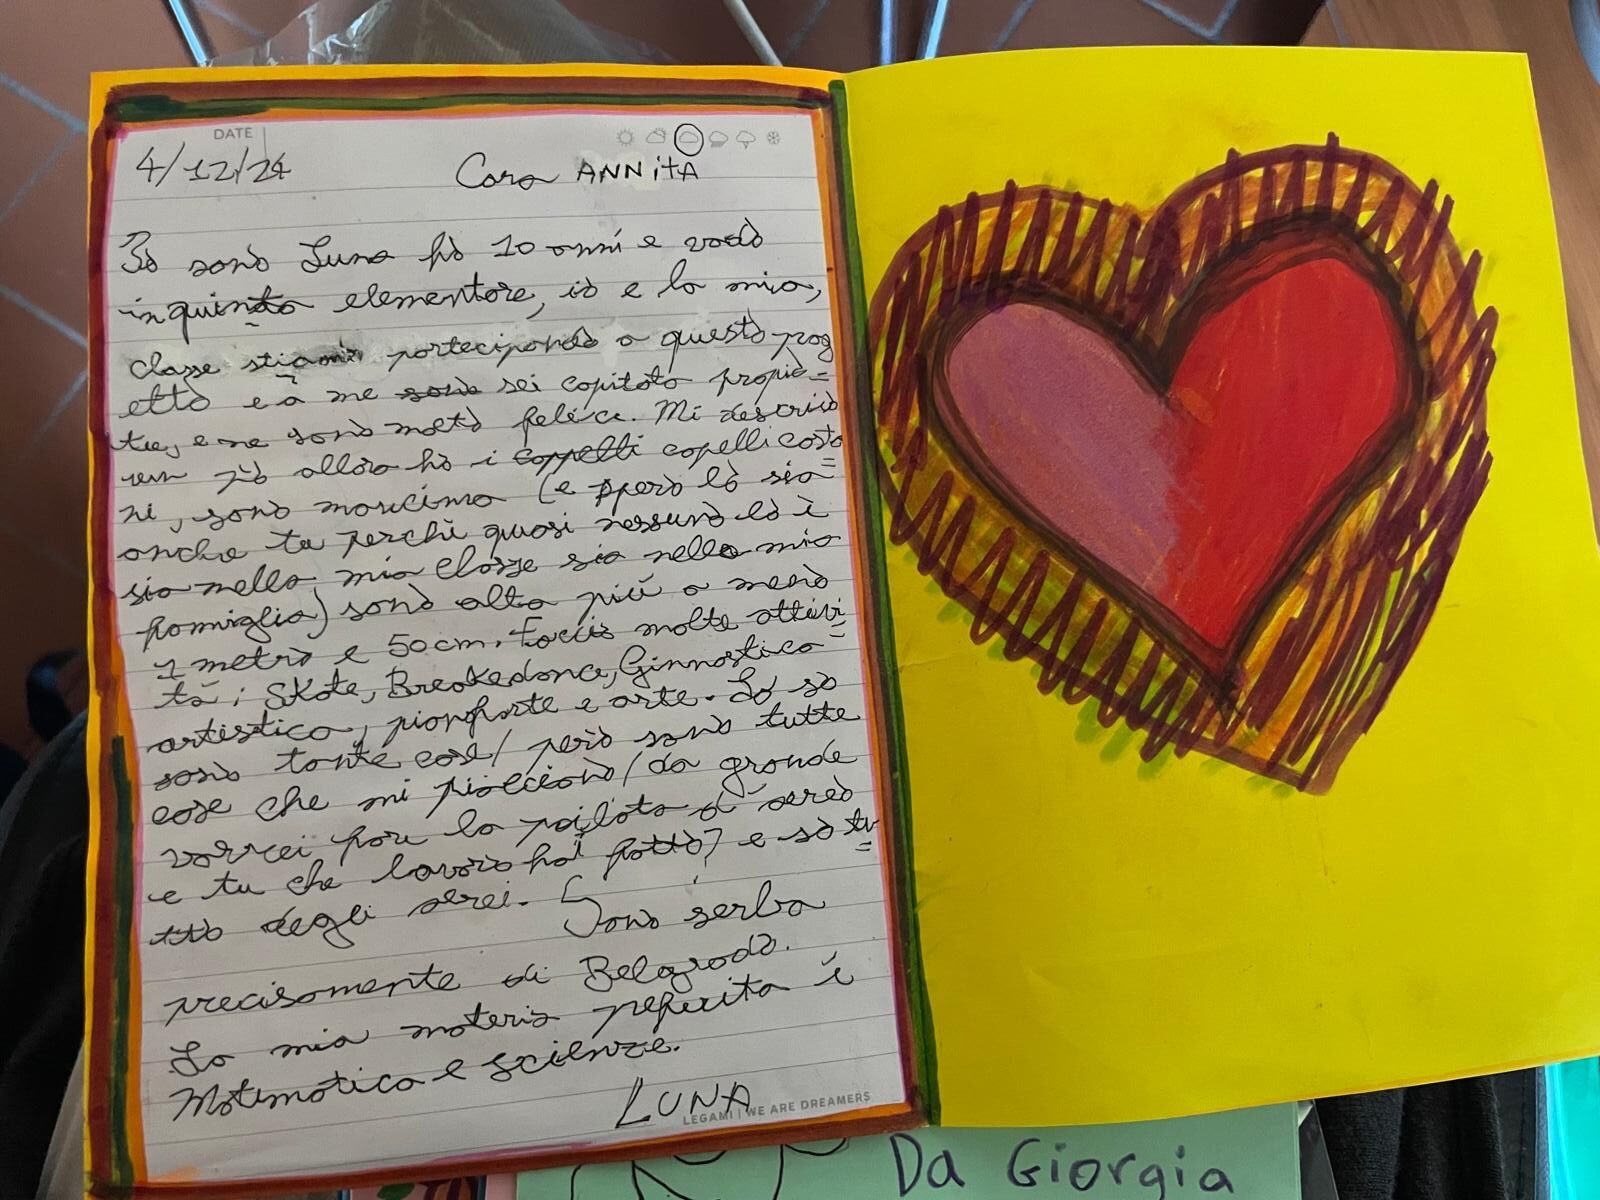 DATE
4/12/24
Cara ANNITA
Io sono Luna ho 10 anni e vado
in quinta elementare, io e la mia,
classe stiamo partecipando a questo prog
etto e a me sono sei capitata propio
tu, e ne sono molto felice. Mi descrivo
un pò allora ho i cappelli capelli casta
ni, sono mancima (e spero lo sia
anche tu perchè quasi nessuno lo è
sia nella mia classe sia nella mia
famiglia) sono alta più o meno
1 metro e 50 cm. Faccio molte attivi
tà; Skate, Breakedance, Ginnastica
artistica, pianoforte e arte. Lo so
sono tante cose/ però sono tutte
cose che mi piacciono/ da grande
vorrei fare la pilota di aereo
e tu che lavoro hai fatto? e so tu
tto degli aerei. Sono serba
precisamente di Belgrado.
La mia materia preferita è
Matematica e scienze.
LUNA
LEGAMI | WE ARE DREAMERS
Da Giorgia